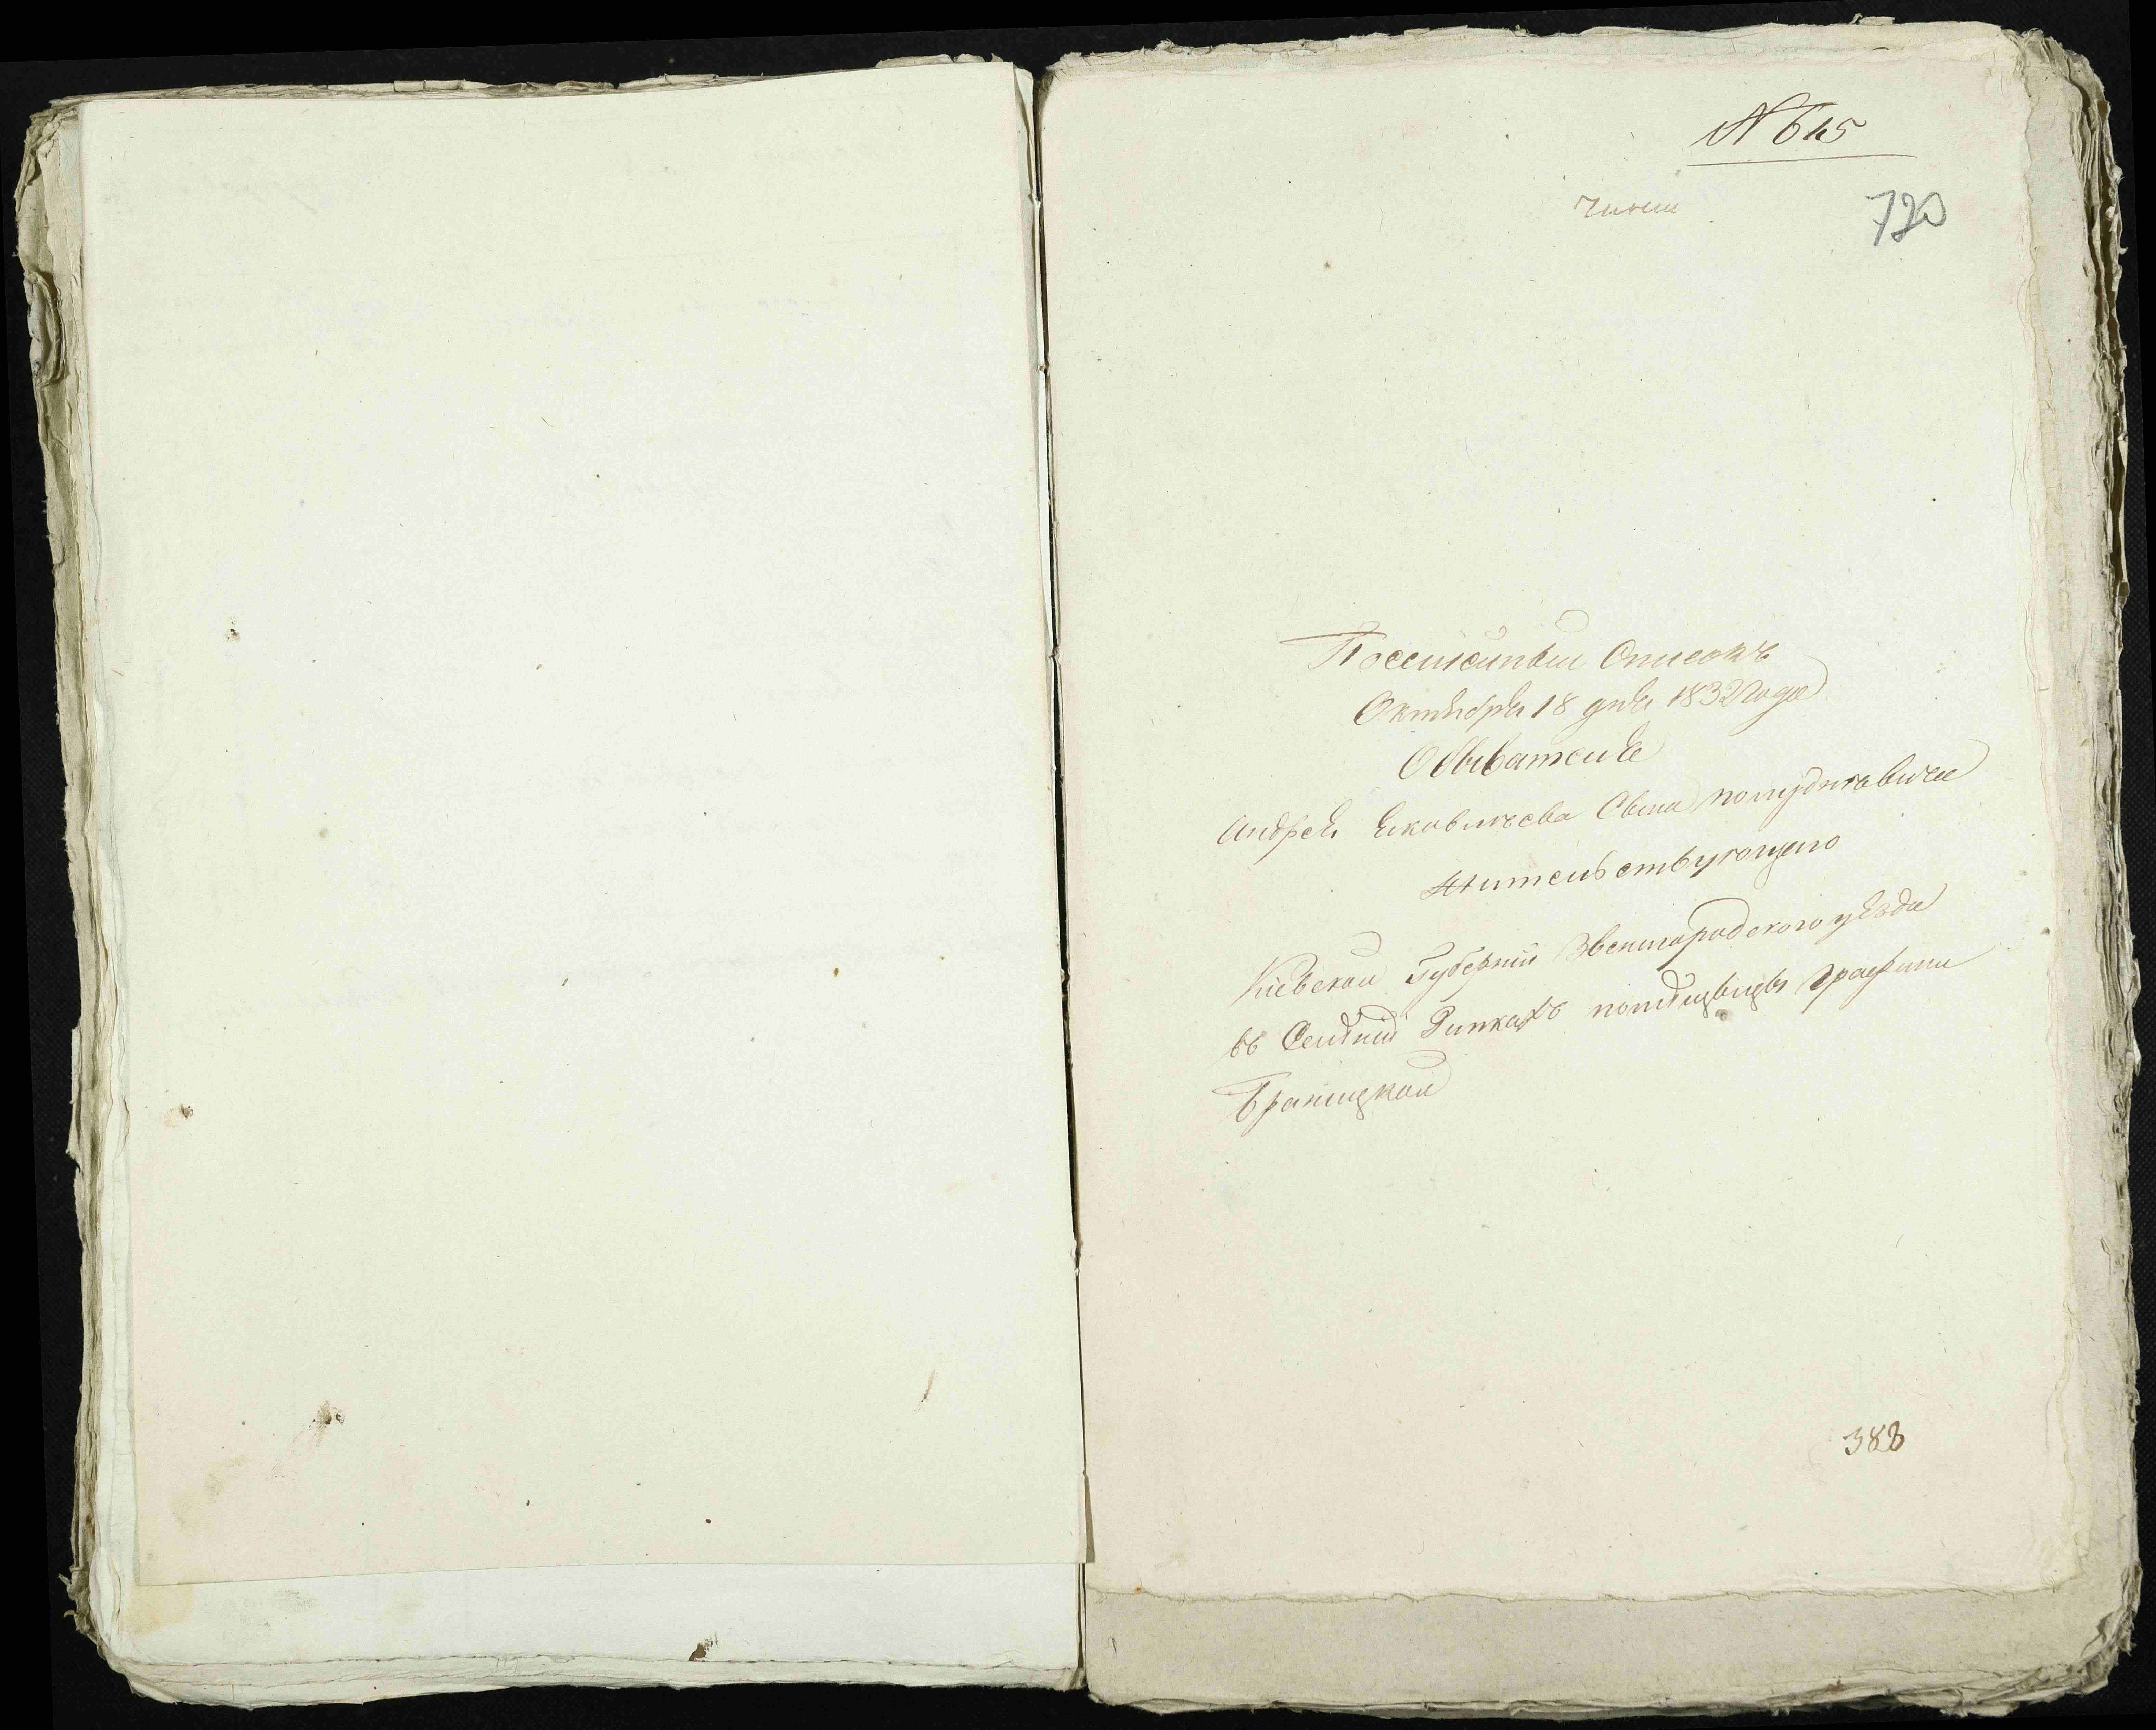 № 615
чинш
720
Посемейный Списокъ
Октября 18 дня 1832 года
Обывателя
Андрея Яковличева Сына
жительствующаго
Кіевской Губерніи Звенигородскаго уѣзда
въ Селеніи помѣщицы Графини
Браницкой
388